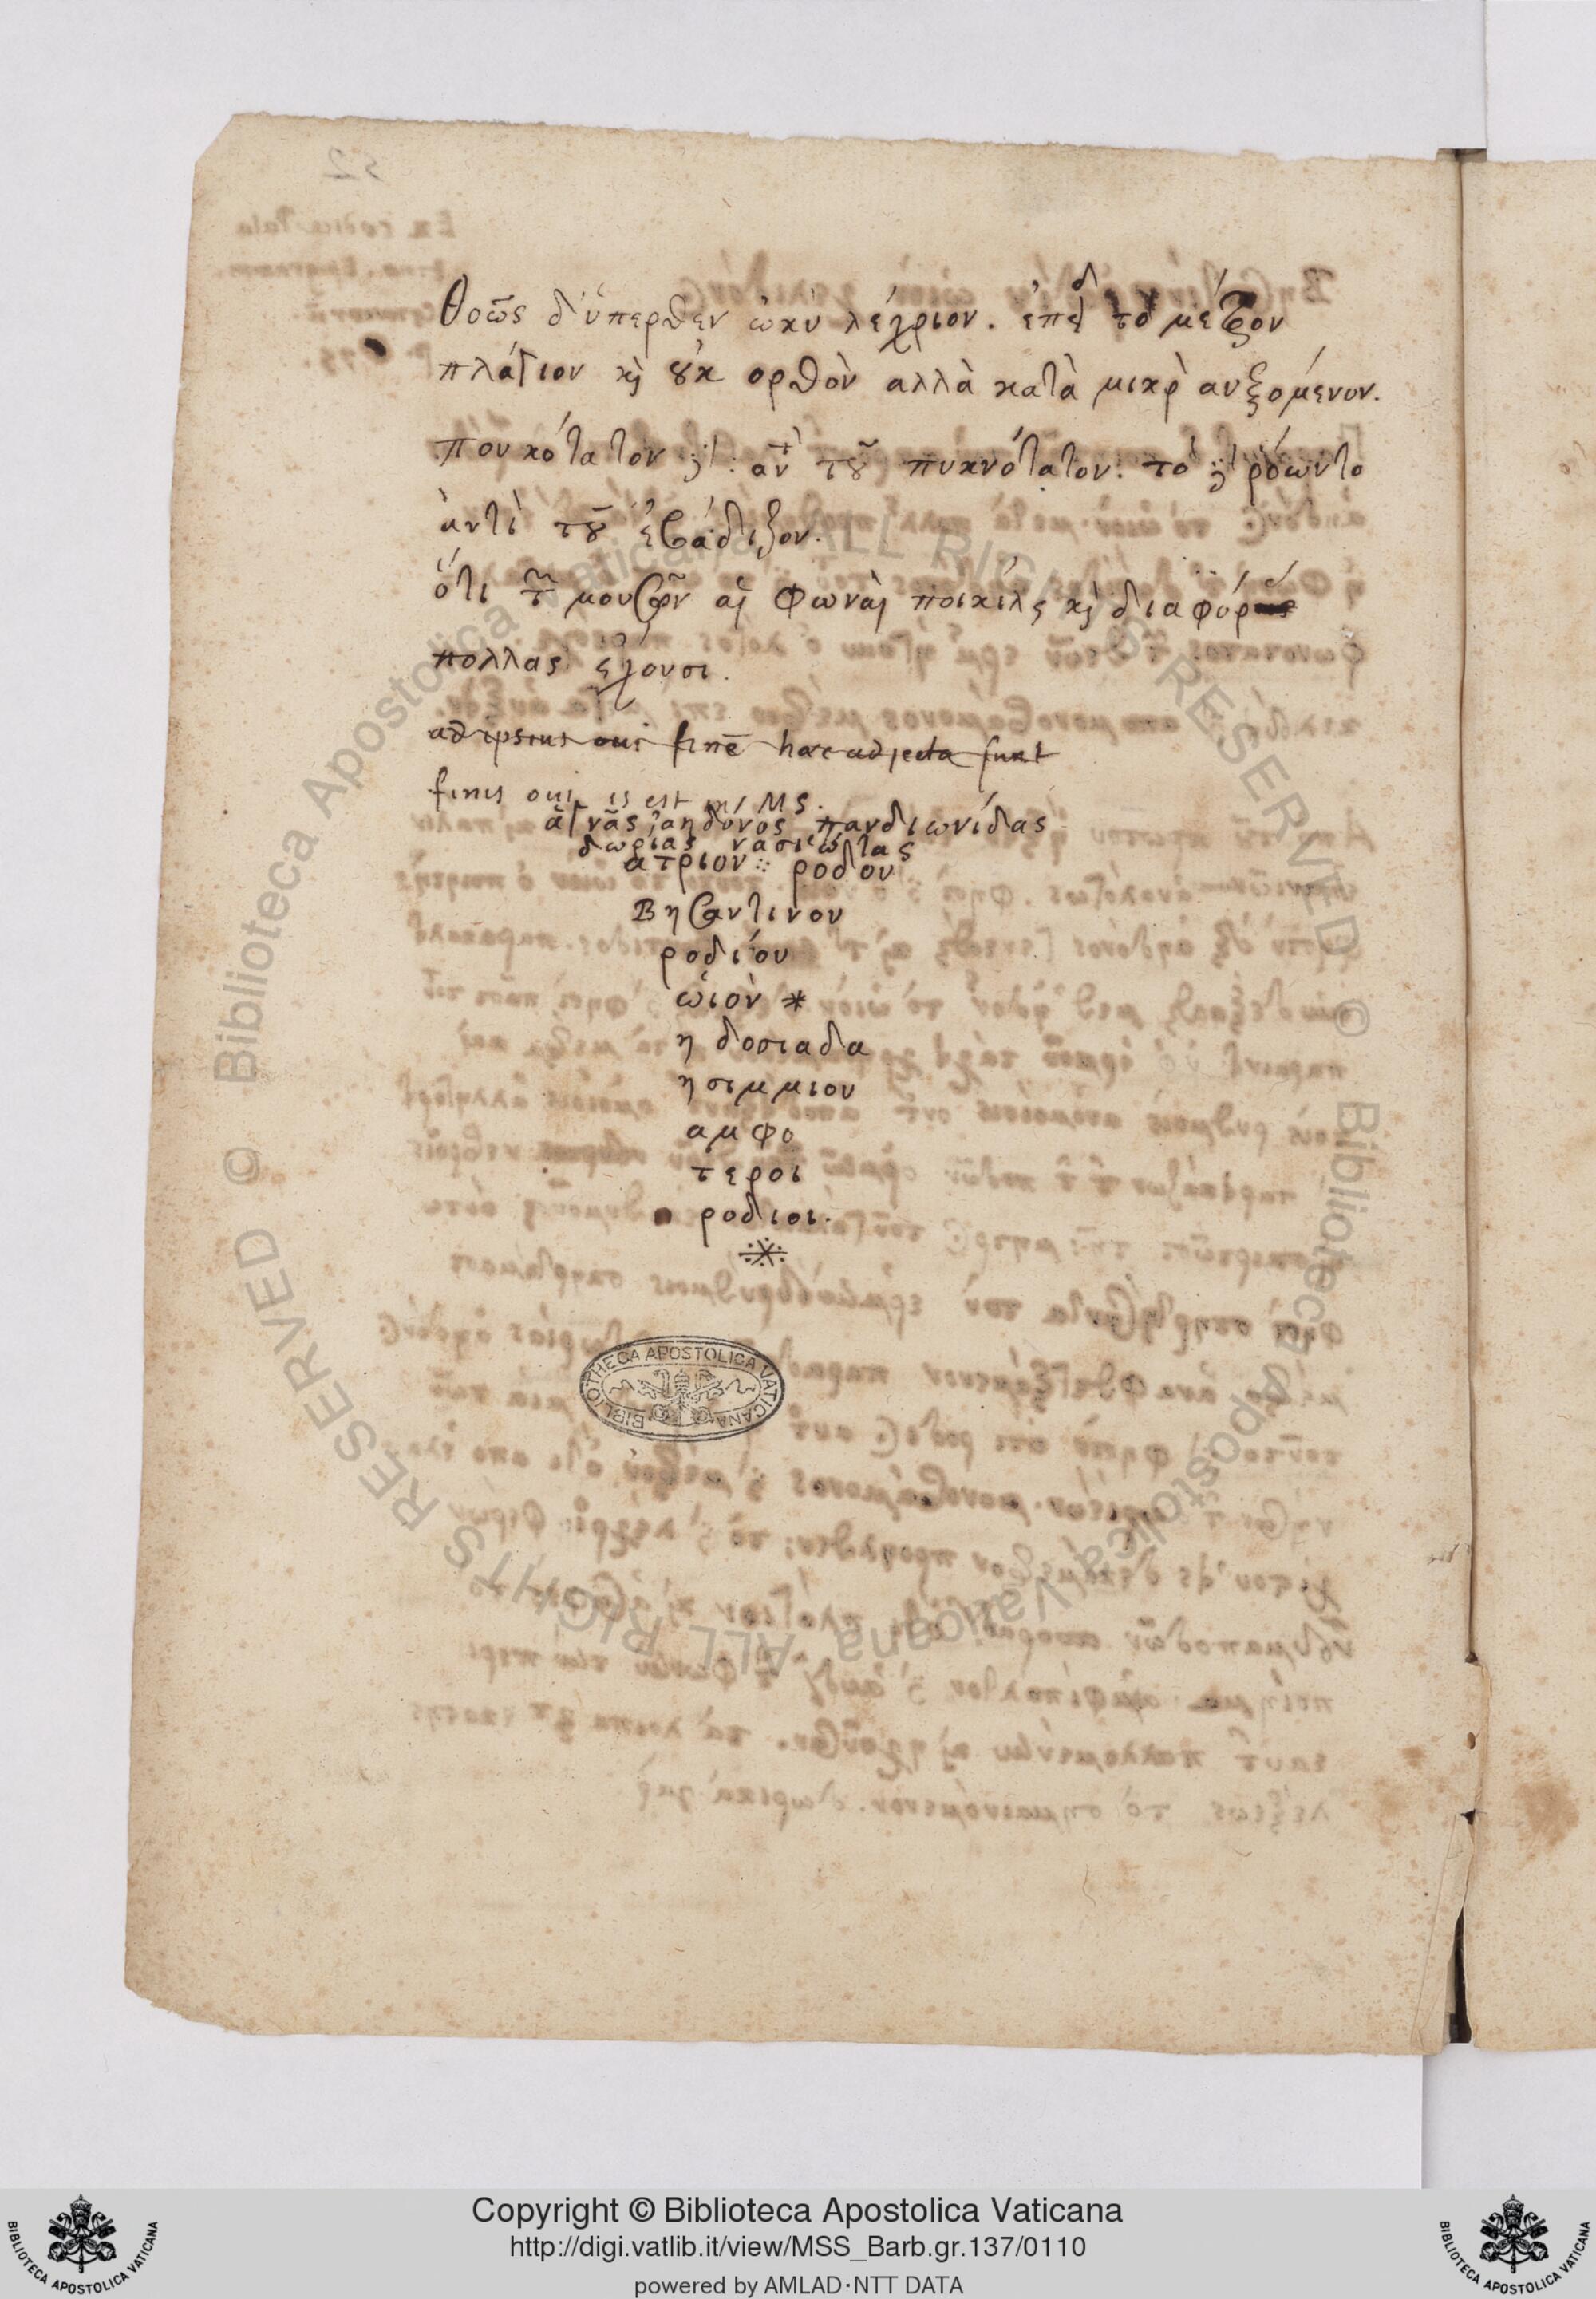 θοῶς δ' ὕπερθεν ὠκὺ λέχριον. ἐπεὶ τὸ μέτρον
πλάγιον κὶ οὐκ ορθὸν αλλὰ κατὰ μικρὸ αυξομενον.
πουκότατον δὲ: αντὶ τοῦ πυκνότατον. τὸ δὲ ρώωντο
ἀντὶ τοῦ ἐβάδιζον.
ὅτι τῶν μουσῶν αἱ φωναὶ ποικίλας κὶ διαφόρους
πολλας ἔχουσι.
ad ipsius oui finē haec adjecta sunt
finis oui is est in MS.
ἀγνᾶς ἀηδόνος πανδιωνίδας
δωριας νασιώτας
ατριον :: ροδον
Βησαντινου
ροδίου
ὠιὸν *
η δοσιαδα
η σιμμιου
αμφο
τεροι
ροδιοι.
※
BIBLIOTHECA APOSTOLICA VATICANA
© Biblioteca Apostolica Vaticana ALL RIGHTS RESERVED
© Biblioteca Apostolica Vaticana ALL RIGHTS RESERVED
Copyright © Biblioteca Apostolica Vaticana
http://digi.vatlib.it/view/MSS_Barb.gr.137/0110
powered by AMLAD·NTT DATA
BIBLIOTECA APOSTOLICA VATICANA
BIBLIOTECA APOSTOLICA VATICANA